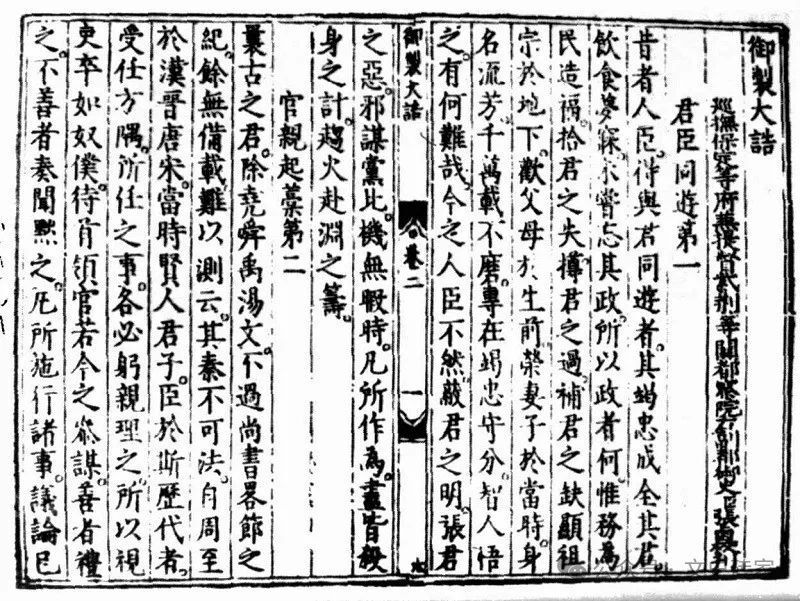 御製大誥
巡撫保定等府兼提督紫荊等關都察院右副都御史張
君臣同遊第一
昔者人臣得與君同遊者。其竭忠成全其君。
飲食夢寐。未嘗忘其政。所以政者何。惟務為
民造福。拾君之失。撙君之過。補君之缺。顯祖
宗於地下。歡父母於生前。榮妻子於當時。身
名流芳。千萬載不磨。專在竭忠守分。智人悟
之。有何難哉。今之人臣不然。蔽君之明。張君
御製大誥 卷二 一
之惡。邪謀黨比。機無暇時。凡所作為。盡皆殺
身之計。趨火赴淵之籌。
官親起藁第二
曩古之君。除堯舜禹湯文。不過尚書畧節之
紀。餘無備載。難以測云。其秦不可法。自周至
於漢晉唐宋。當時賢人君子。臣於斯歷代者。
受任方隅。所任之事。各必躬親理之。所以視
吏卒如奴僕。待首領官若今之叅謀。善者禮
之。不善者奏聞黜之。凡所施行諸事。議論已